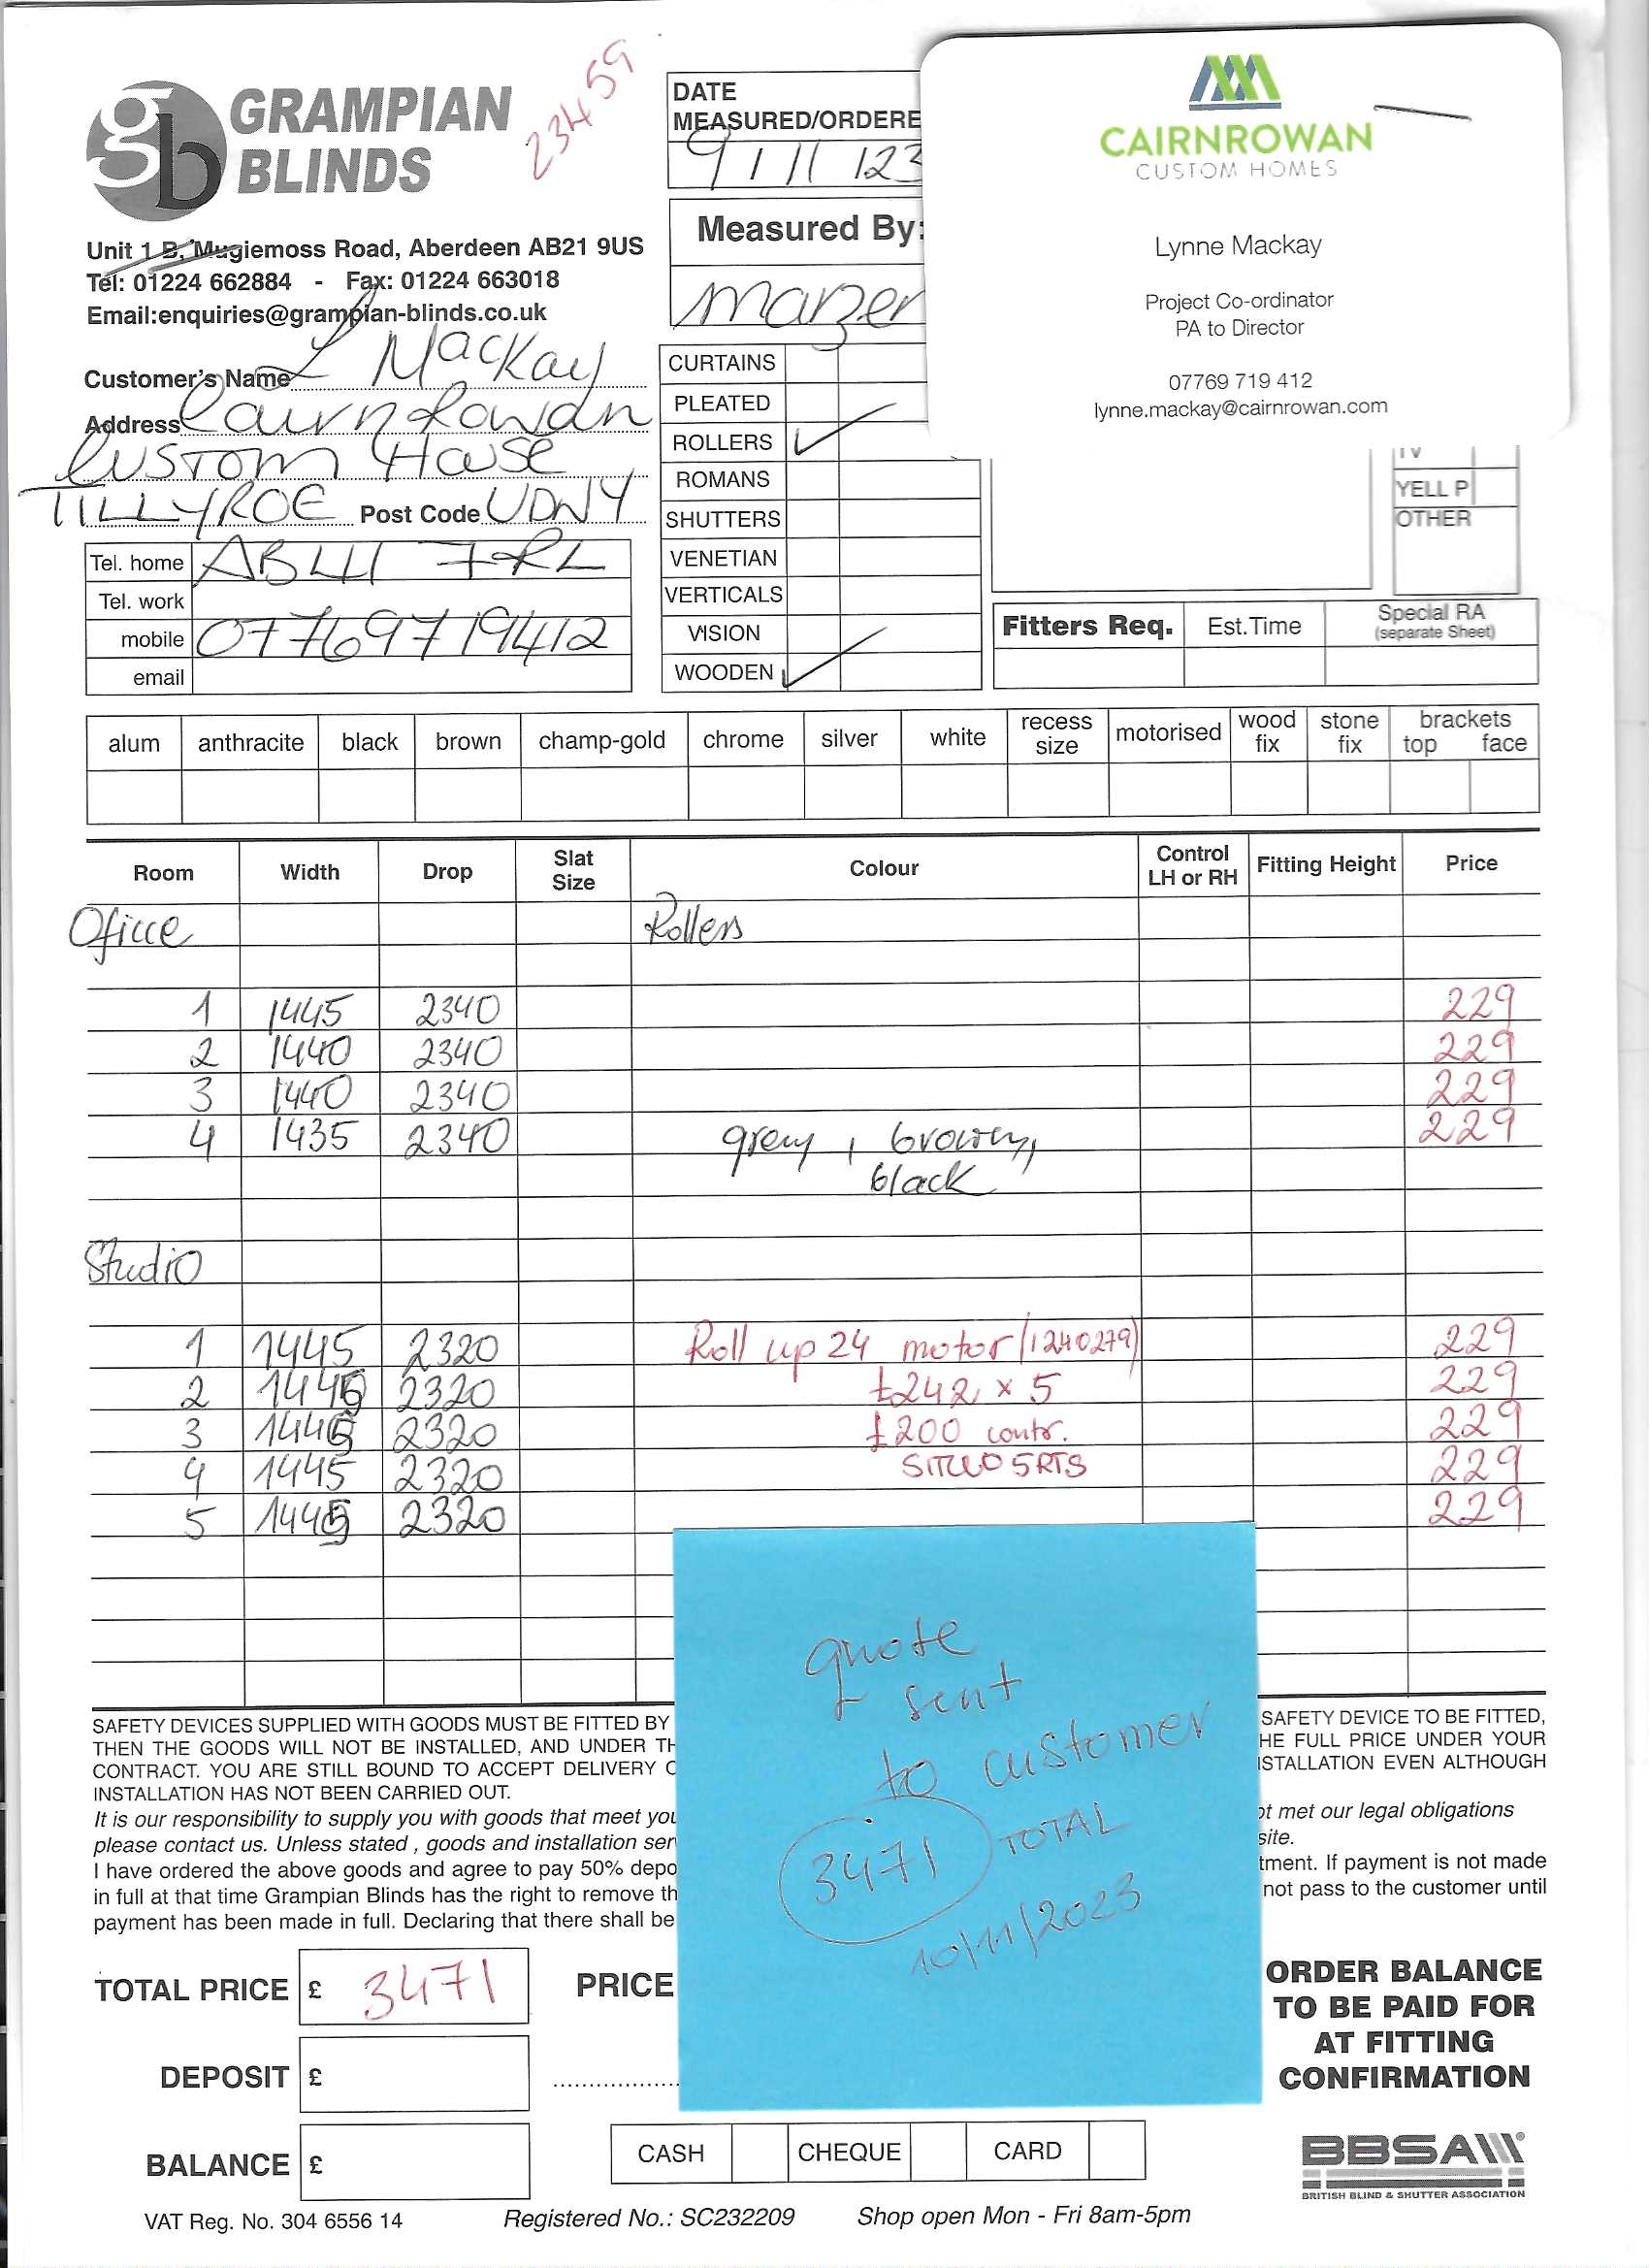 GRAMPIAN
BLINDS
23459
Unit 1 B, Mugiemoss Road, Aberdeen AB21 9US
Tel: 01224 662884 - Fax: 01224 663018
Email:enquiries@grampian-blinds.co.uk
DATE
MEASURED/ORDERE
9/11/23
Measured By:
CAIRNROWAN
CUSTOM HOMES
Lynne Mackay
Project Co-ordinator
PA to Director
07769 719 412
lynne.mackay@cairnrowan.com
Customer's Name L Mackay
Address Cairn Rowan
Custom House
TILLYROE Post Code UDNY
Tel. home AB41 7RL
Tel. work
mobile 07769719412
email
CURTAINS
PLEATED
ROLLERS ✓
ROMANS
SHUTTERS
VENETIAN
VERTICALS
VISION
WOODEN ✓
TV
YELL P
OTHER
Fitters Req. Est.Time Special RA
(separate Sheet)
alum anthracite black brown champ-gold chrome silver white recess size motorised wood fix stone fix brackets top face
Room Width Drop Slat Size Colour Control LH or RH Fitting Height Price
Oficce Rollers
1 1445 2340 229
2 1440 2340 229
3 1440 2340 229
4 1435 2340 grey, brown, 229
black
Studio
1 1445 2320 Roll up 24 motor (1240279) 229
2 1445 2320 £242 x 5 229
3 1445 2320 £200 contr. 229
4 1445 2320 SITUO 5 RTS 229
5 1445 2320 229
quote
sent
to customer
3471 TOTAL
10/11/2023
SAFETY DEVICES SUPPLIED WITH GOODS MUST BE FITTED BY SAFETY DEVICE TO BE FITTED,
THEN THE GOODS WILL NOT BE INSTALLED, AND UNDER TH HE FULL PRICE UNDER YOUR
CONTRACT. YOU ARE STILL BOUND TO ACCEPT DELIVERY O STALLATION EVEN ALTHOUGH
INSTALLATION HAS NOT BEEN CARRIED OUT.
It is our responsibility to supply you with goods that meet you ot met our legal obligations
please contact us. Unless stated , goods and installation ser site.
I have ordered the above goods and agree to pay 50% depo tment. If payment is not made
in full at that time Grampian Blinds has the right to remove th not pass to the customer until
payment has been made in full. Declaring that there shall be
TOTAL PRICE £ 3471 PRICE
DEPOSIT £
BALANCE £
CASH CHEQUE CARD
ORDER BALANCE
TO BE PAID FOR
AT FITTING
CONFIRMATION
BBSA
BRITISH BLIND & SHUTTER ASSOCIATION
VAT Reg. No. 304 6556 14 Registered No.: SC232209 Shop open Mon - Fri 8am-5pm